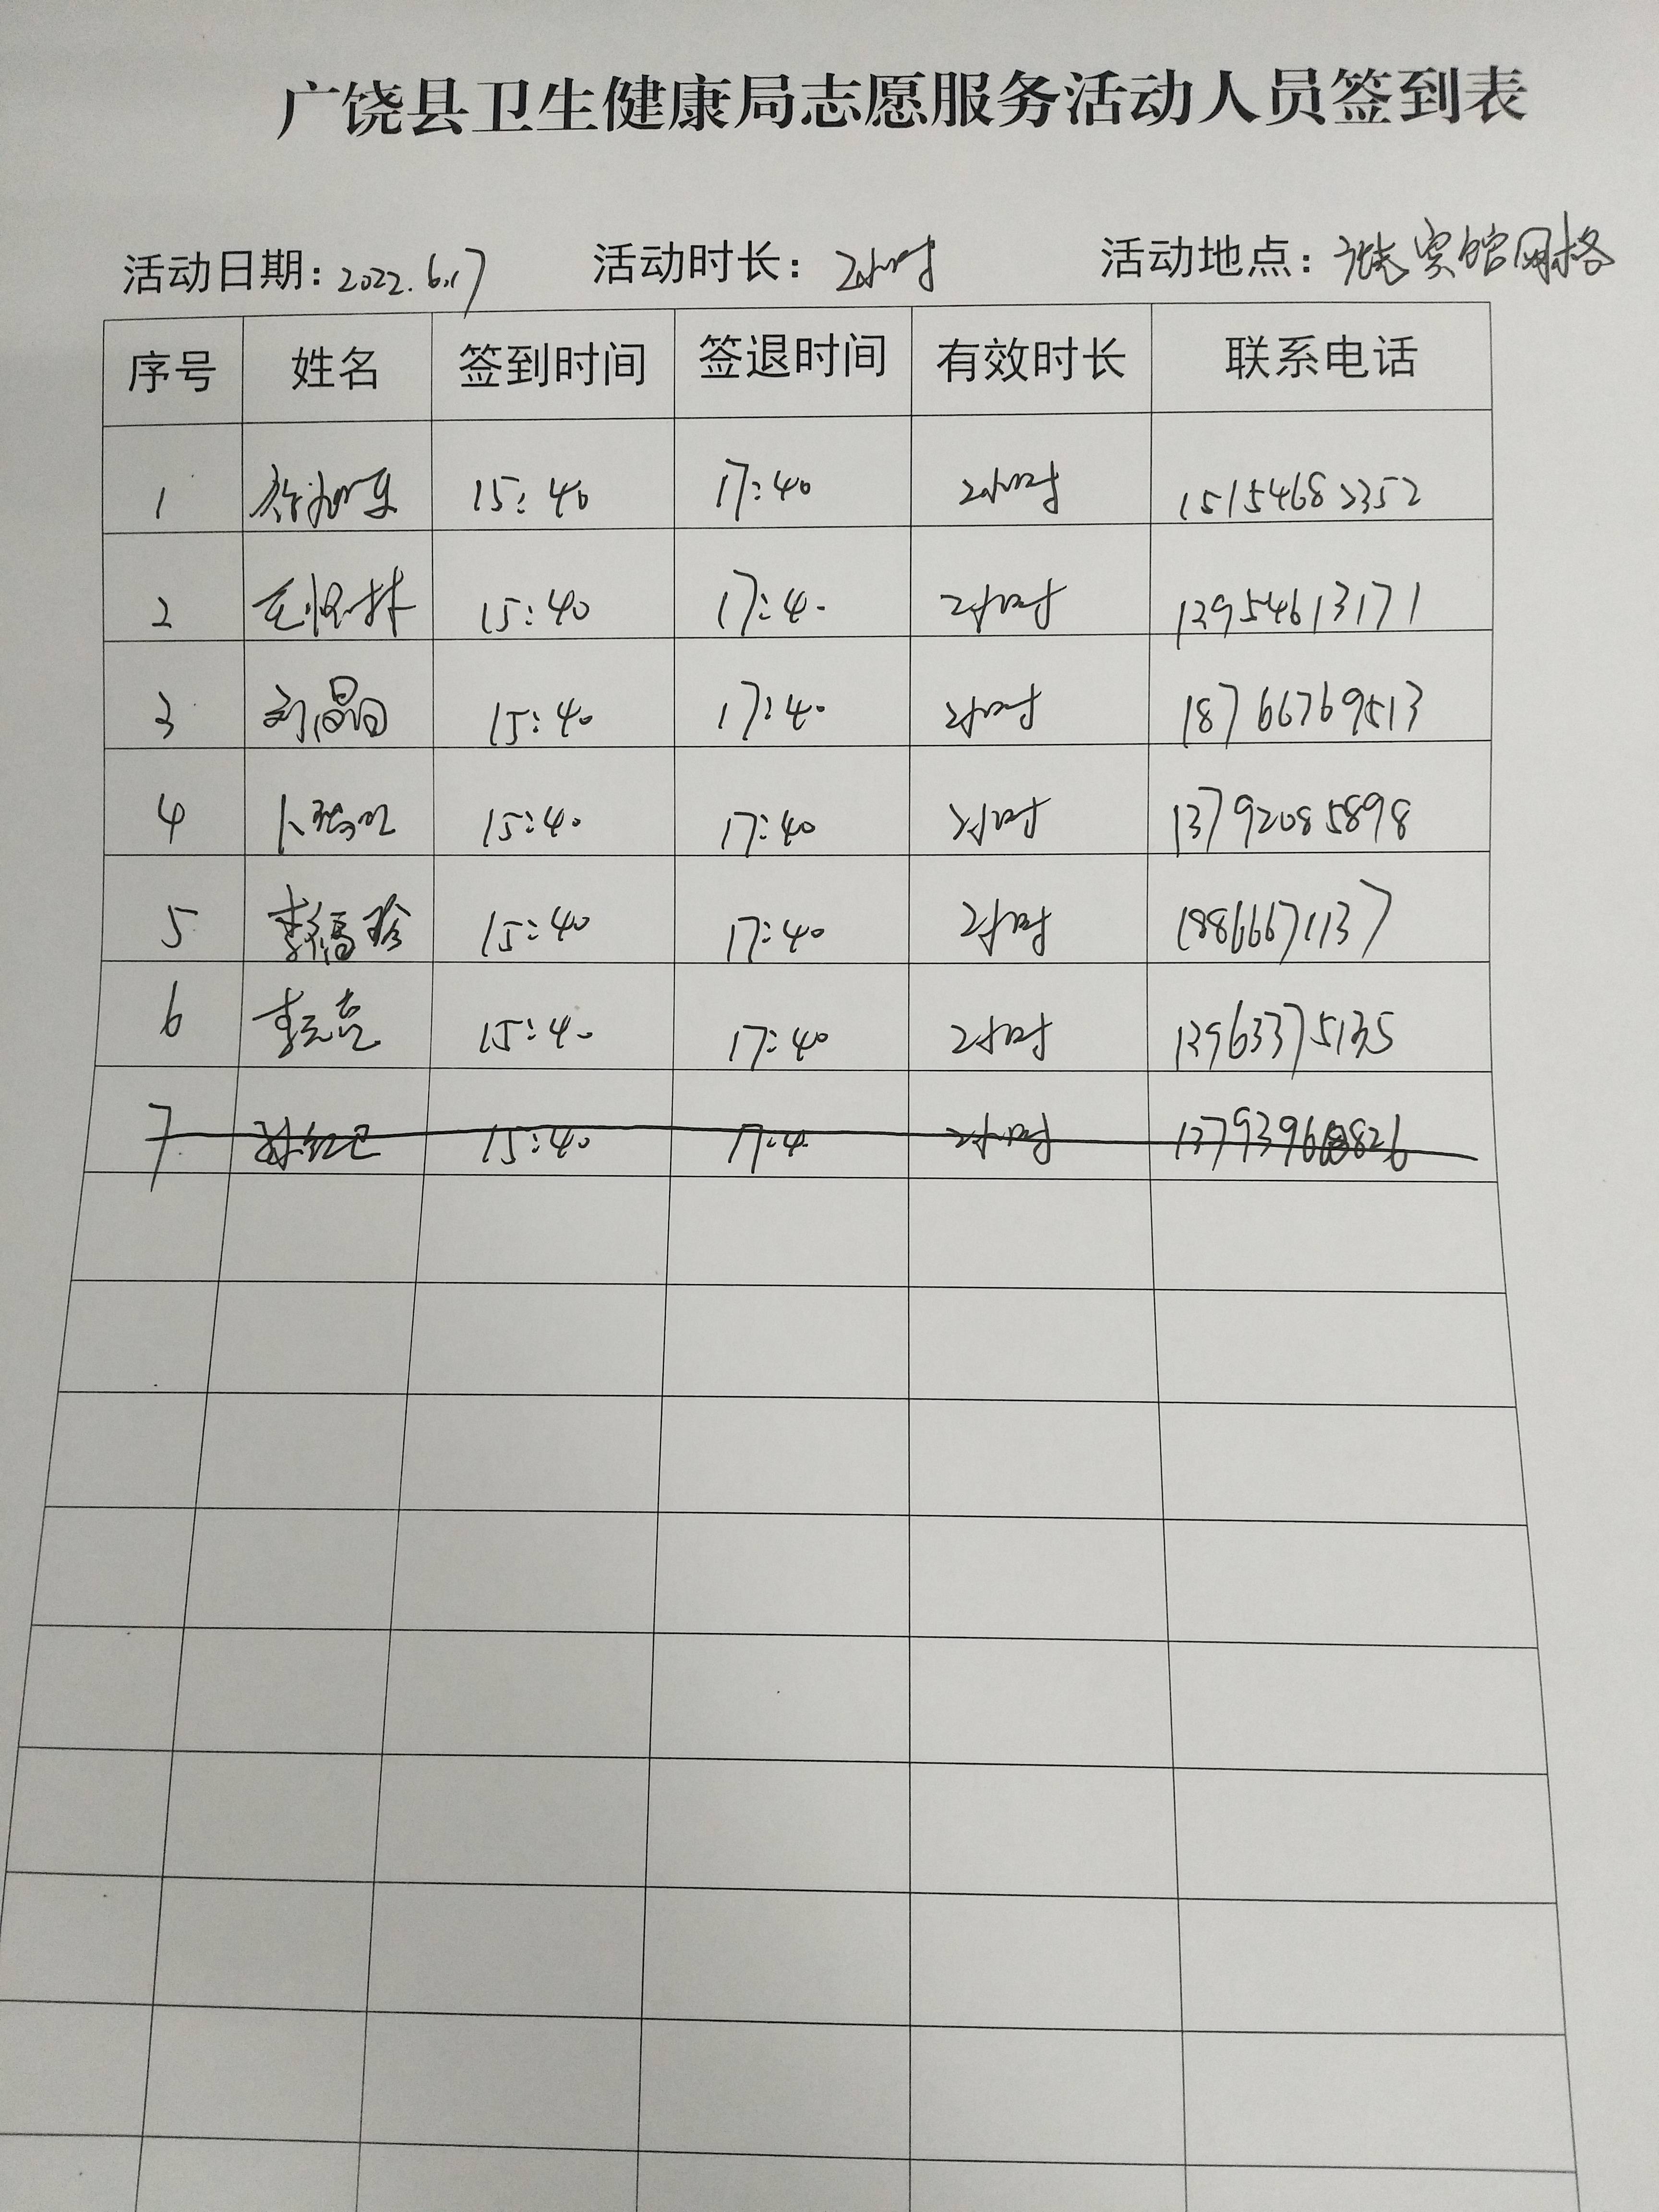 广饶县卫生健康局志愿服务活动人员签到表
活动日期：2022.6.17 活动时长：2小时 活动地点：广饶宾馆网格
序号 姓名 签到时间 签退时间 有效时长 联系电话
1 15:40 17:40 2小时 15154682352
2 15:40 17:40 2小时 13954613171
3 刘晶 15:40 17:40 2小时 18766769513
4 15:40 17:40 2小时 13792085898
5 李福珍 15:40 17:40 2小时 18866671137
6 李元亮 15:40 17:40 2小时 13963375135
7 15:40 17:40 2小时